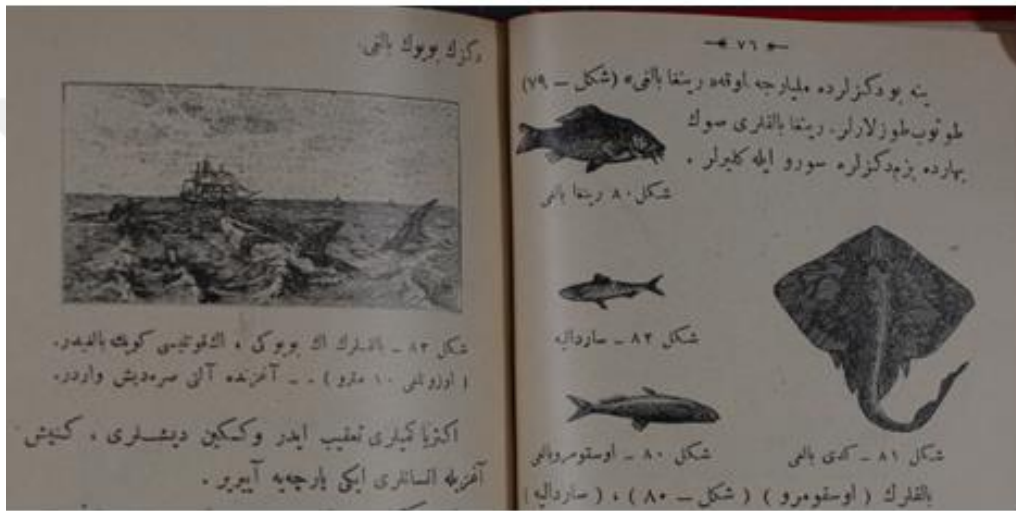 — ٧٦ —
ينه بو دكزلرده مليارجه اوقه‌ده رينغا بالغى» (شكل — ٧٩)
طوتوب طوزلارلر. رينغا بالقلرى صوك
بهارده بزم دكزلره سورو ايله كليرلر .
شكل ٨٠ رينغا بالغى
شكل ٨٢ ـ ساردالیه
شكل ٨٠ ـ اوسقومروبالغى
شكل ٨١ ـ كدى بالغى
بالقلرك ( اوسقومرو ) ( شكل — ٨٠ ) ، ( ساردالیه )
دكزك بويوك بالغى.
شكل ٨٣ ـ بالقلرك اك بويوكى ، اك قوتليسى كوپك باليغيدر.
( اوزونلغى ١٠ مترو ) . ـ آغزنده آلتى صره ديش واردر.
اكثريا كميلرى تعقيب ايدر وكسكين ديشلرى ، كنيش
آغزيله انسانلرى ايكى پارچه‌يه آييرير .